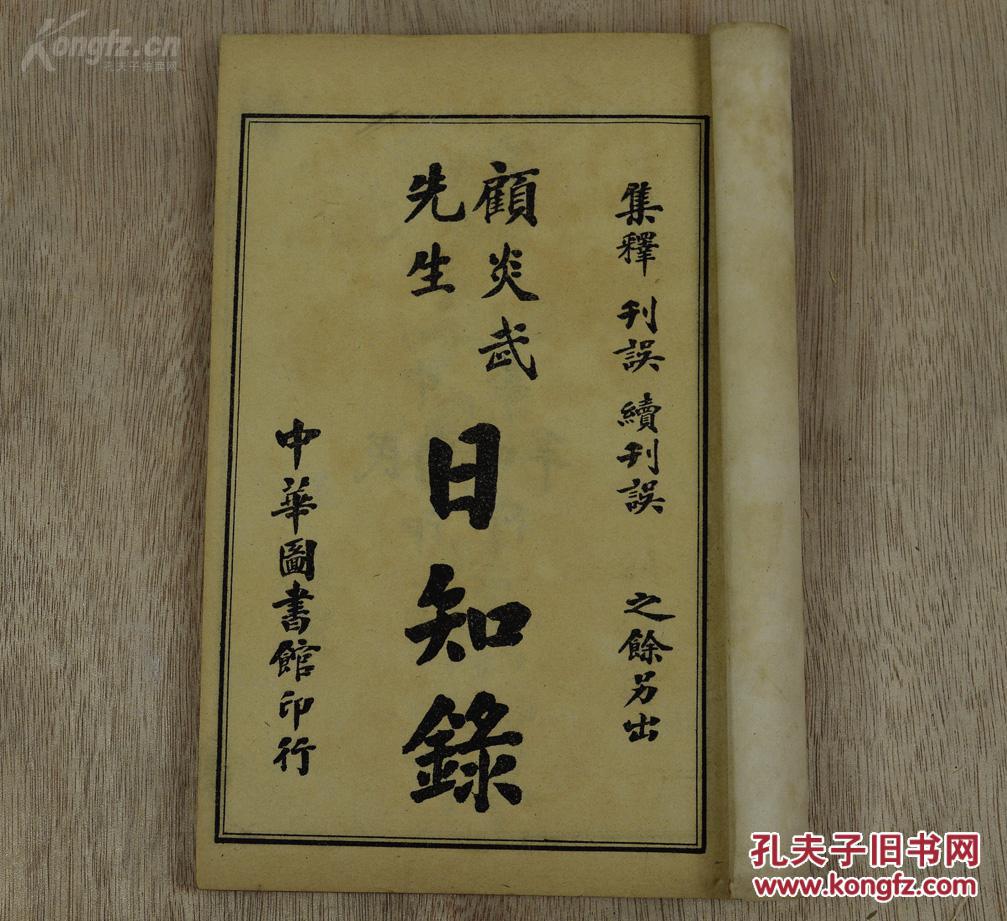 集釋 刊誤 續刊誤 之餘另出
顧炎武
先生
日知錄
中華圖書館印行
Kongfz.cn
孔夫子旧书网
www.kongfz.com